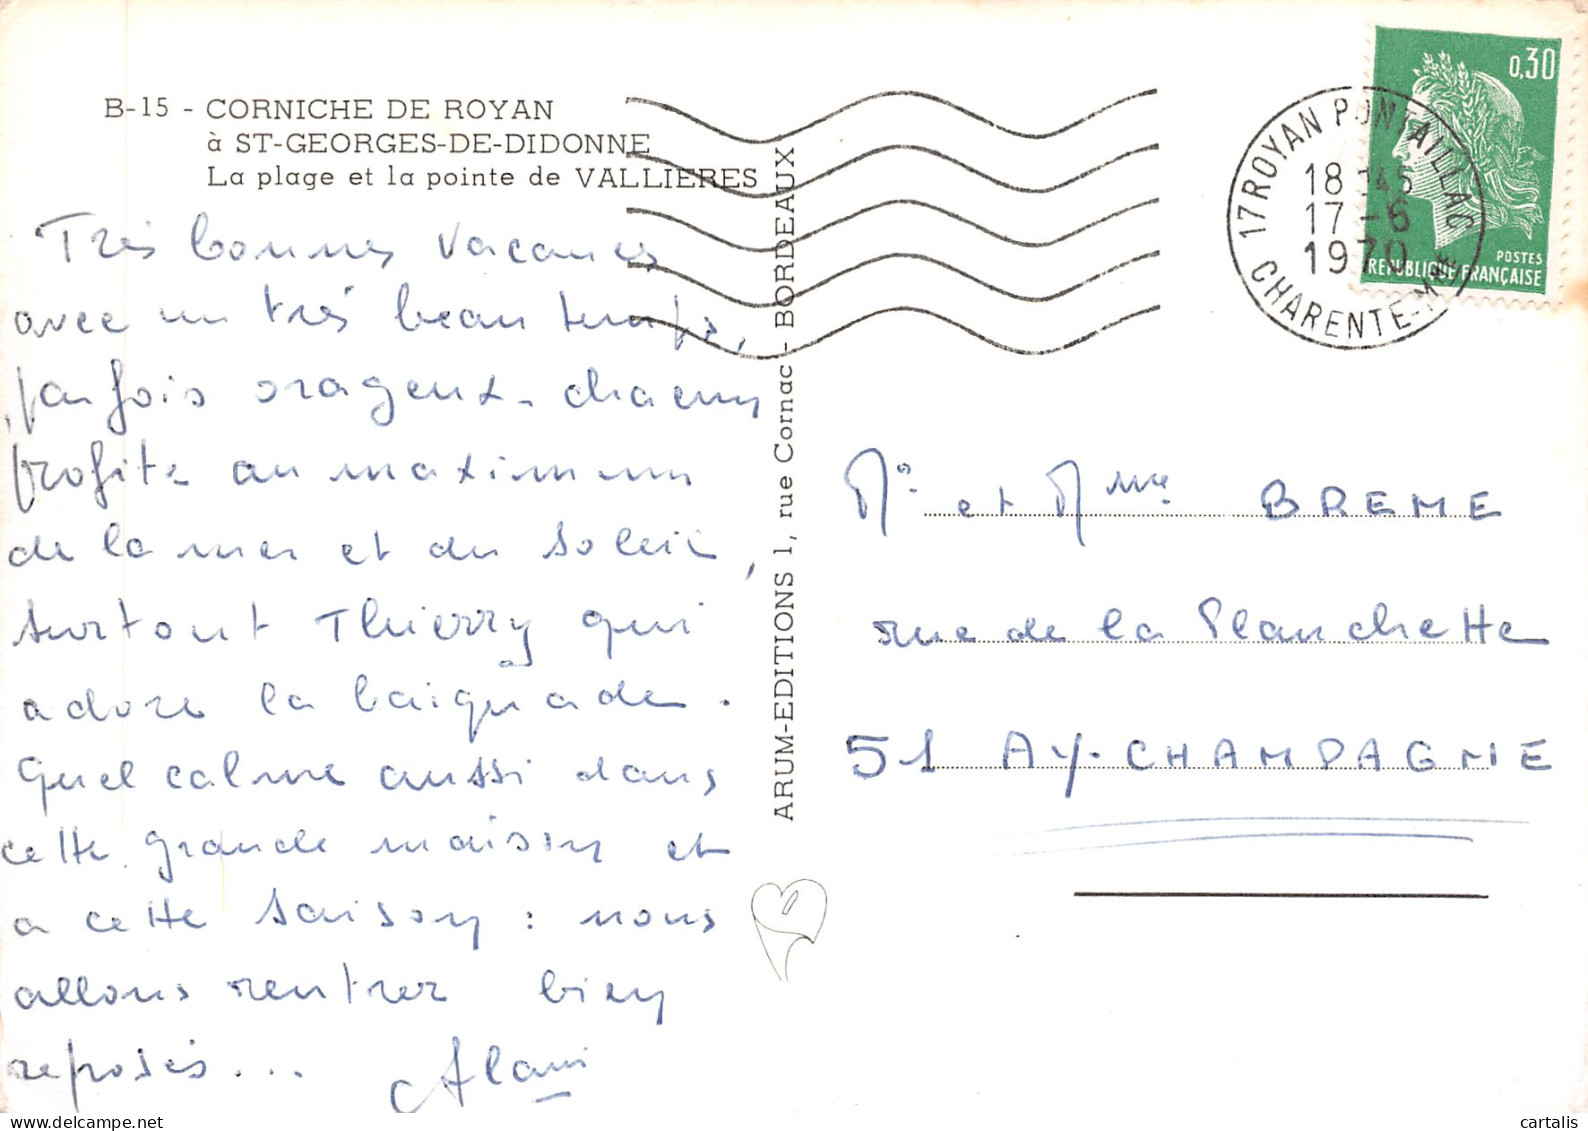 B-15 - CORNICHE DE ROYAN
à ST-GEORGES-DE-DIDONNE
La plage et la pointe de VALLIERES
Très bonnes vacances
avec un très beau temps,
parfois orageux. chacun
profite au maximum
de la mer et du soleil,
surtout Thierry qui
adore la baignade.
Quel calme aussi dans
cette grande maison et
a cette saison : nous
allons rentrer bien
reposés...
Alain
ARUM-EDITIONS 1, rue Cornac - BORDEAUX
17 ROYAN PONTAILLAC
18 H45
17-6
1970
CHARENTE-MME
0,30
POSTES
REPUBLIQUE FRANÇAISE
Mr et Mme BREME
rue de la Planchette
51 AY-CHAMPAGNE
delcampe.net
cartalis